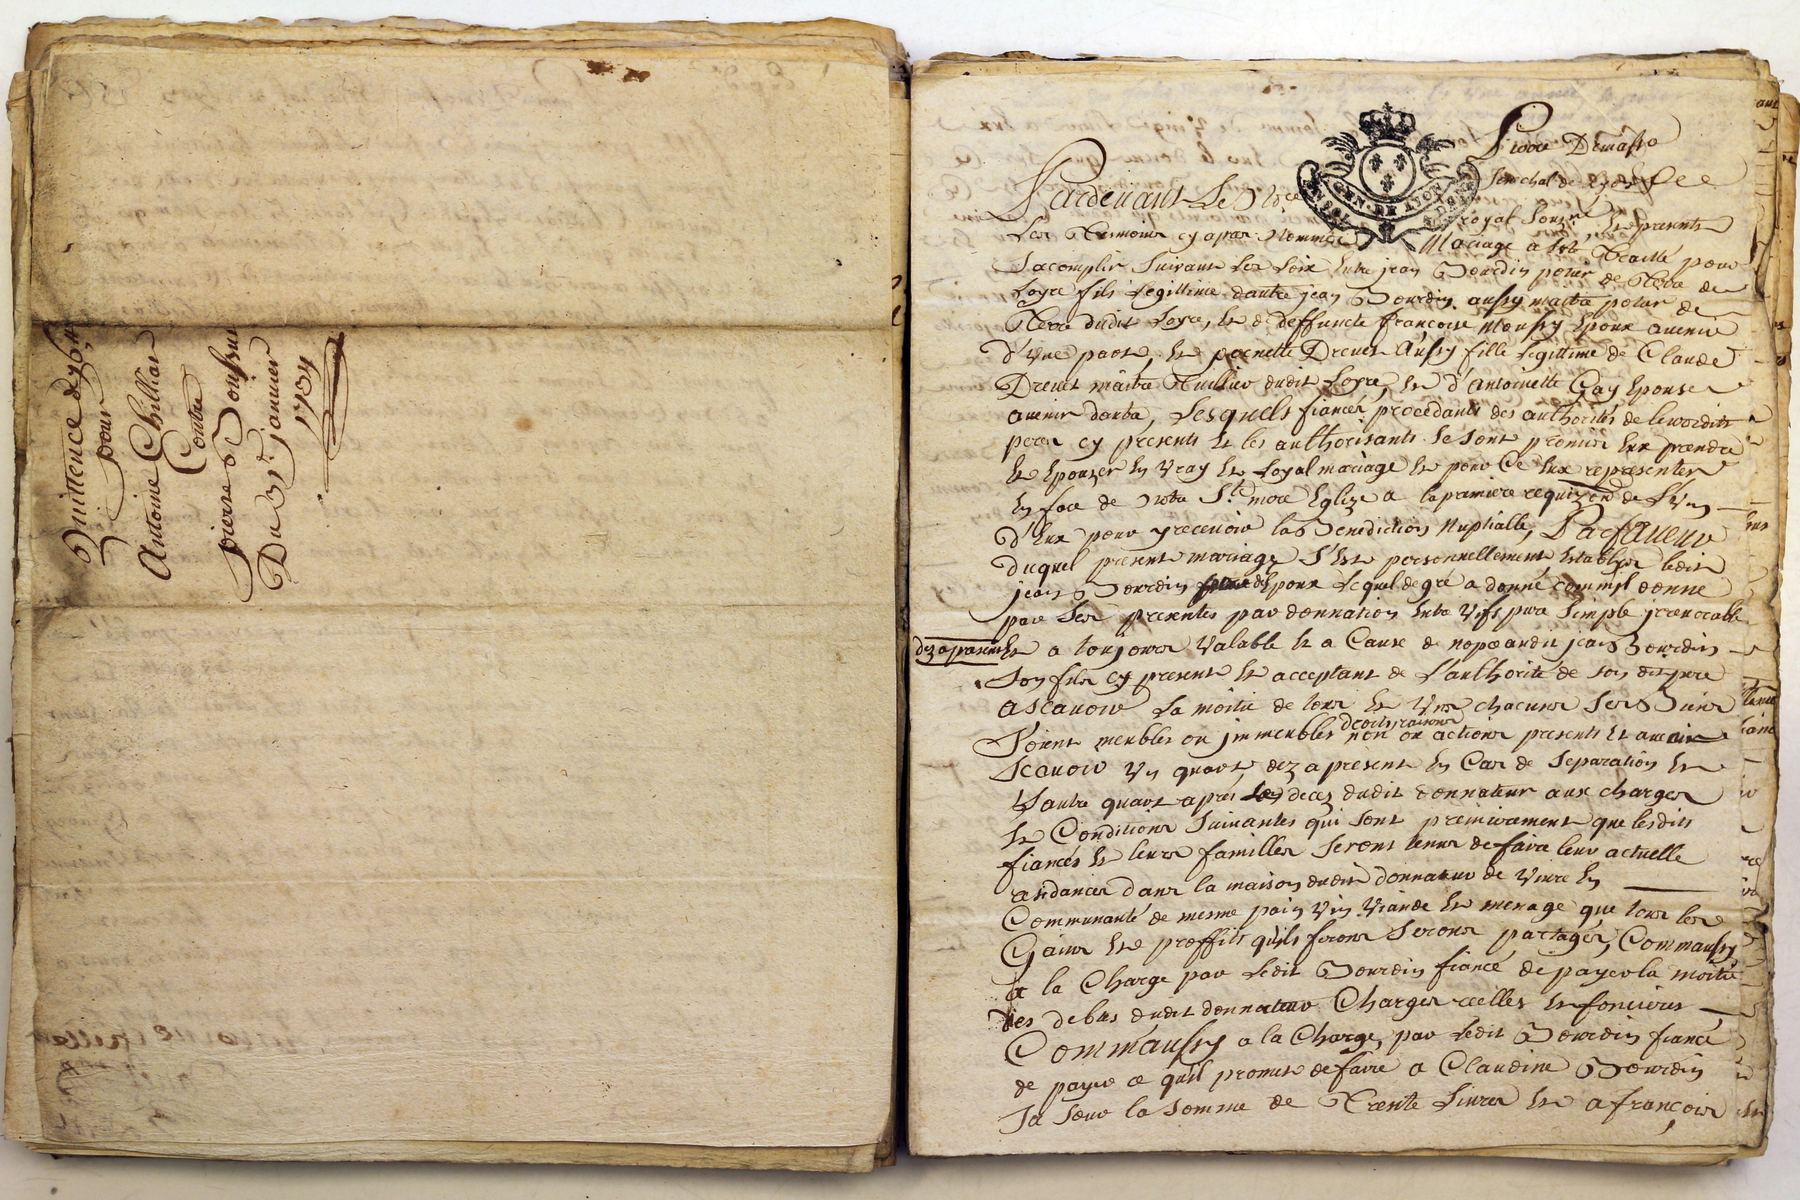 Quittence de 96#
pour
Antoine Chillion
Contre
pierre
Du 31e janvier
1734
GEN. DE LYON
Pierre Demasso
Senechal de Lyon
Pardevant Le No.re royal soussné, et presents
Les temoins cy apres nommés Mariage a esté traitté pour
Sacomplir suivant les loix Entre jean Bourdin potier de terre de
Loyre fils Legittime dautre jean Bourdin aussy maitre potier de
terre dudit Loyre, et de deffuncte francoise Epoux avenir
d'Une part, Et pernette Drevet Aussy fille Legittime de Claude
Drevet maitre tuillier dudit Loyre, et d'antoinette Gay Epouse
avenir dautre, Lesquels fiancés procedants des authorités de leursdits
peres cy presents et les authorisants se sont promis Eux prendre
et Epouser En Vray et Loyal mariage et pour Ce Eux representer
En face de notre Ste. mere Eglize a la premiere requizon. de L'Un
d'Eux pour y recevoir la Benediction Nuptialle, Par faveur
duquel present mariage S'est personnellement Establyt ledit
jean Bourdin Epoux Lequel de gré a donné comm'il donne
par ses presentes par donnation Entre Vifs pure simple jrevocable
dez a present
Et a toujours Valable et a Cause de nopce audit jean Bourdin
Son fils cy present Et acceptant de L'authorité de son dit pere
ascavoir La moitié de tous Et Uns chacuns ses Biens
droits raisons
Soient meubles ou jmmeubles ou actions presents Et avenir
Scavoir Un quart dez a present En Cas de Separation Et
L'autre quart aprés deces dudit donnateur aux charges
Et Conditions Suivantes qui sont premierement que lesdits
fiancés Et leurs familles seront tenus de faire leur actuelle
residance dans la maison dudit donnateur de Vivre En
Communauté de mesme pain Vin Viande Et menage que tous les
Gains Et proffits qu'ils feront Seront partagés, Commaussy
a la Charge par Ledit Bourdin fiancé de payer la moitié
des debtes dudit donnateur Charges reelles Et foncieres
Commaussy a la Charge, par Ledit Bourdin fiancé
de payer ce quil promet de faire a Claudine Bourdin
Sa soeur la Somme de Trente Livres Et a françois